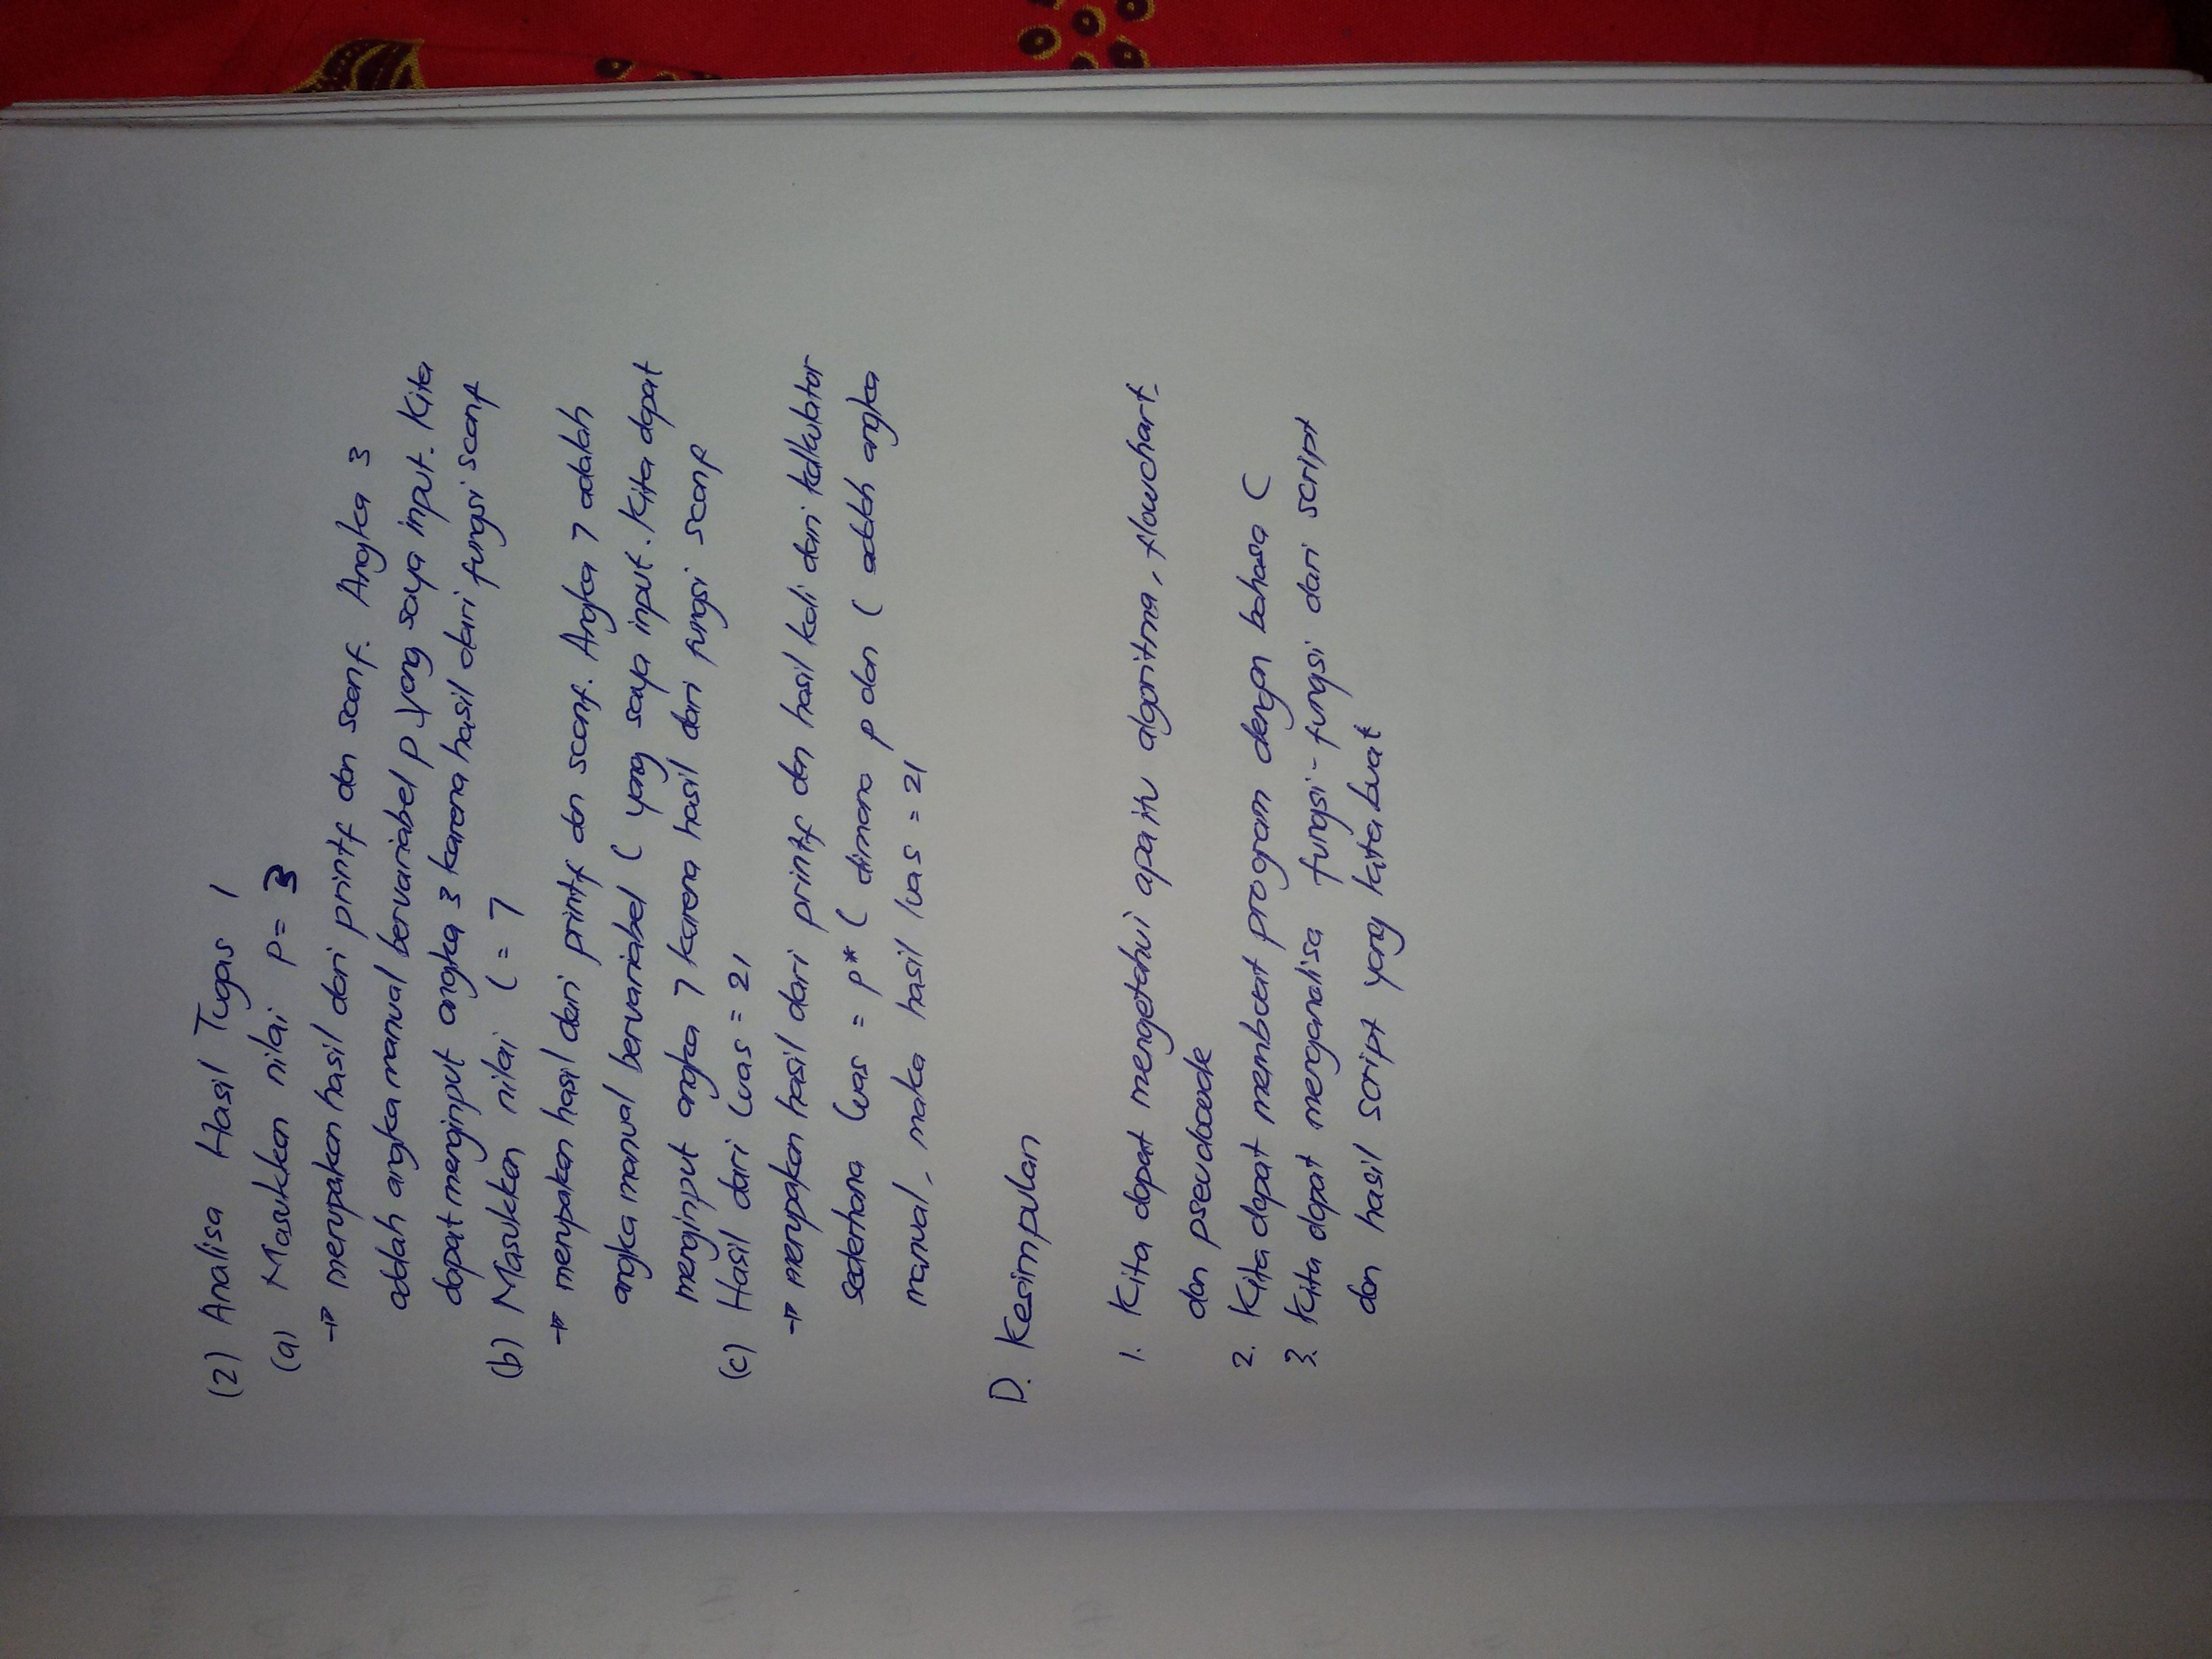 (2) Analisa Hasil Tugas 1
(a) Masukkan nilai p = 3
→ merupakan hasil dari printf dan scanf. Angka 3
adalah angka manual bervariabel p yang saya input. Kita
dapat menginput angka 3 karena hasil dari fungsi scanf
(b) Masukkan nilai l = 7
→ merupakan hasil dari printf dan scanf. Angka 7 adalah
angka manual bervariabel l yang saya input. Kita dapat
menginput angka 7 karena hasil dari fungsi scanf
(c) Hasil dari luas = 21
→ merupakan hasil dari printf dan hasil kali dari kalkulator
sederhana luas = p * l dimana p dan l adalah angka
manual, maka hasil luas = 21
D. Kesimpulan
1. Kita dapat mengetahui apa itu algoritma, flowchart,
dan pseudocode
2. Kita dapat membuat program dengan bahasa C
3. Kita dapat menganalisa fungsi-fungsi dari script
dan hasil script yang kita buat